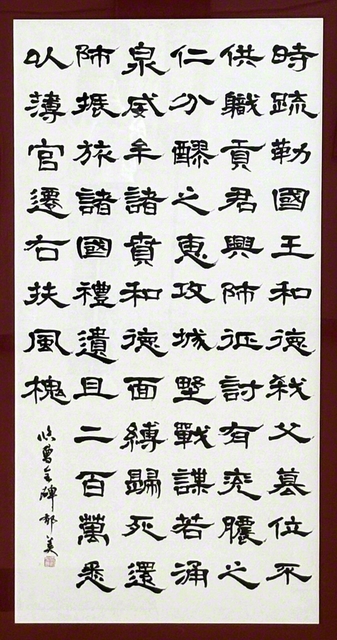 時疏勒國王和德弒父篡位不
供職貢君興師征討有兗膿之
仁分醪之惠攻城野戰謀若涌
泉威牟諸賁和德面縛歸死還
師振旅諸國禮遺且二百萬悉
以薄官遷右扶風槐
臨曹全碑 美